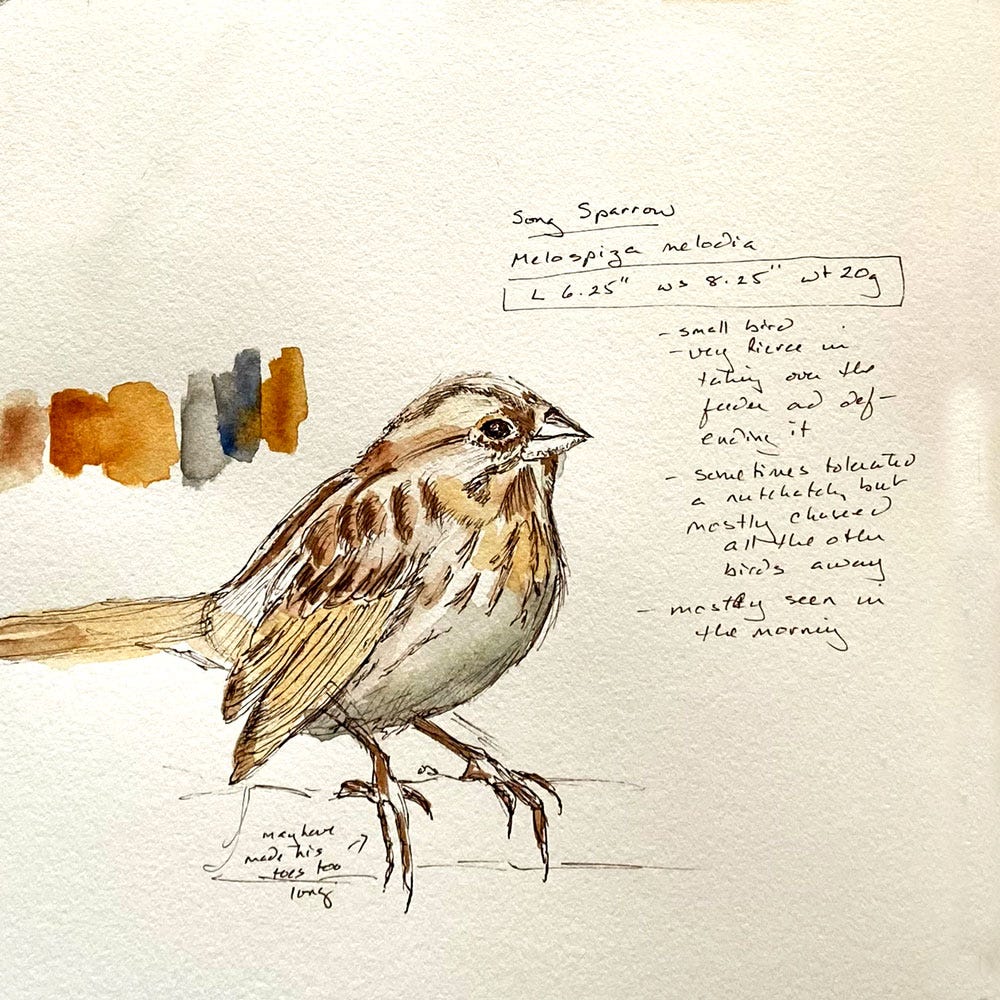 Song Sparrow
Melospiza melodia
L 6.25" ws 8.25" wt 20g
- small bird
- very fierce in
taking over the
feeder ad def-
ending it
- sometimes tolerated
a nuthatch, but
mostly chased
all the other
birds away
- mostly seen in
the morning
may have
made his
toes too
long